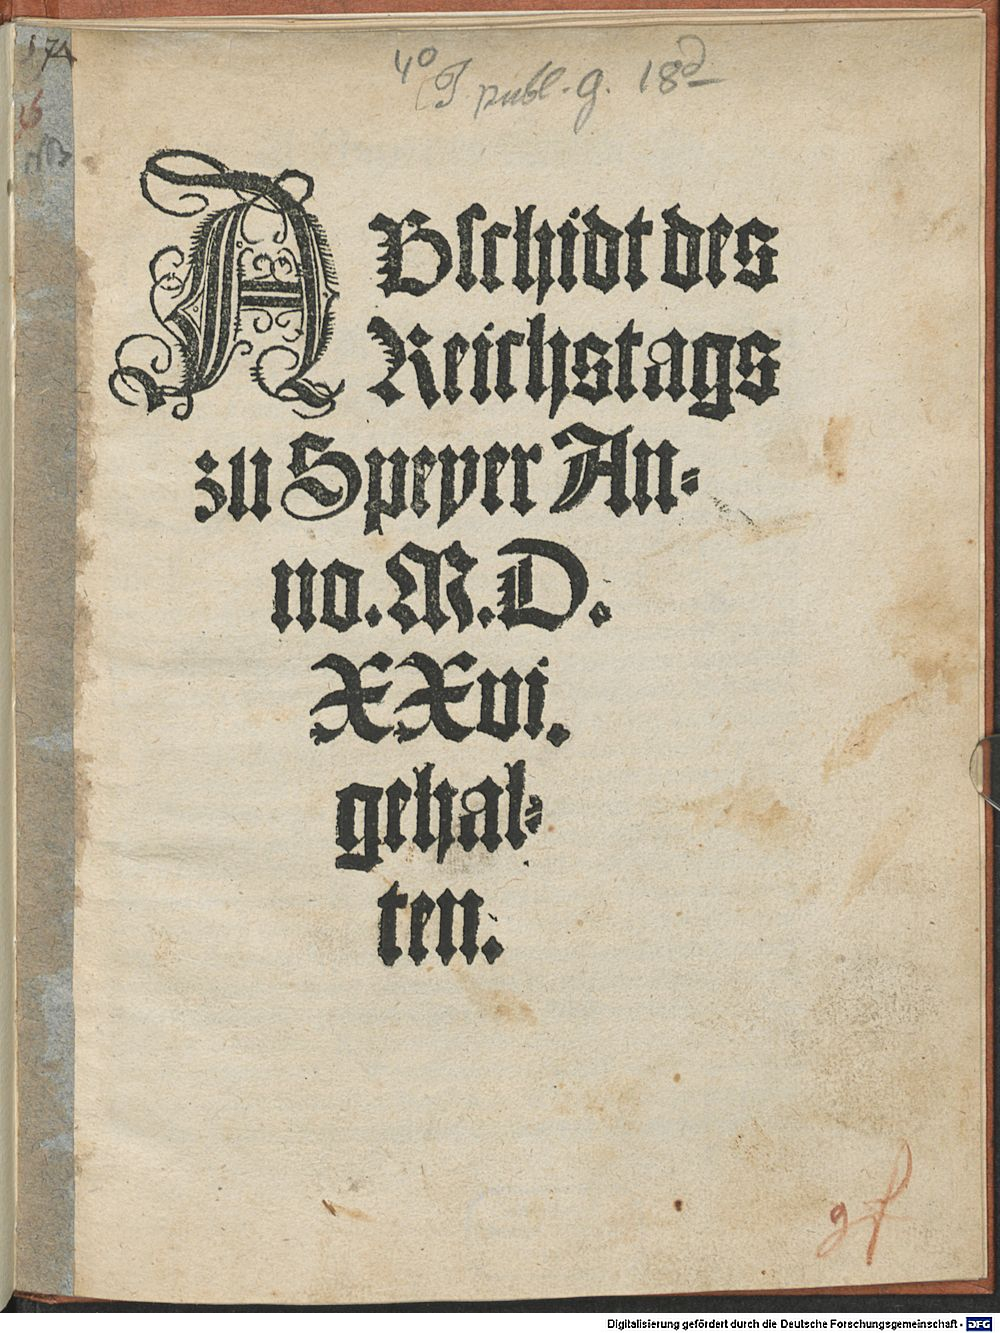 4° J. publ. g. 18d
ABschidt des
Reichstags
zu Speyer An-
no. M. D.
XXvi.
gehal-
ten.
Digitalisierung gefördert durch die Deutsche Forschungsgemeinschaft - DFG